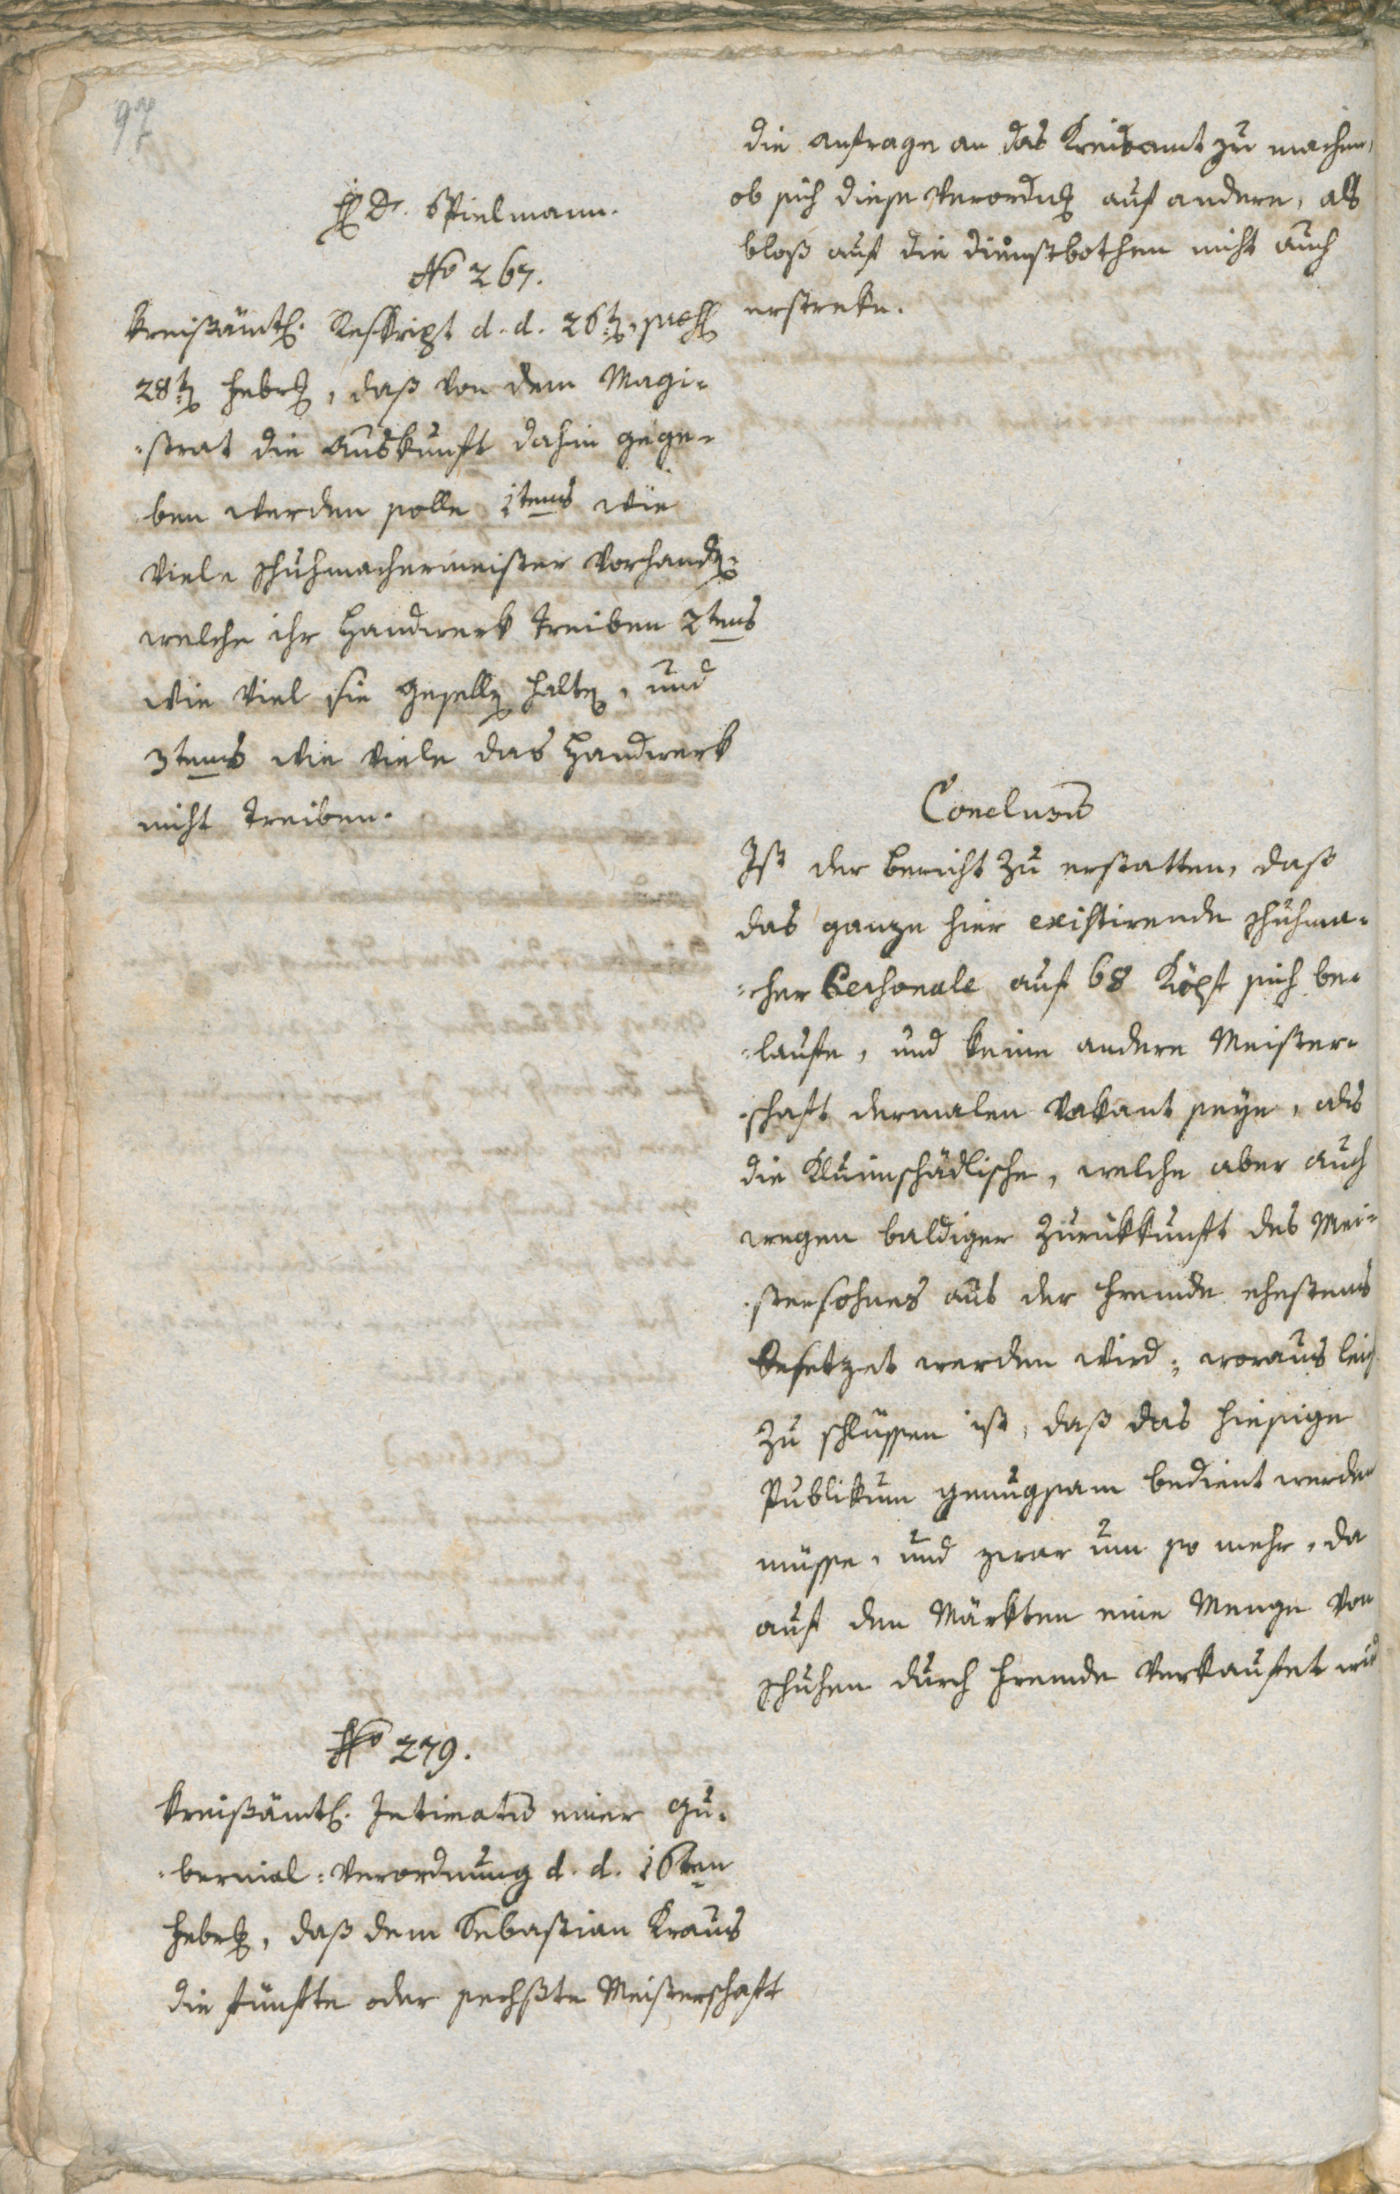 97
H. Dr. Spielmann.
No 267.
Kreißämtl. Reskript d. d. 26t. pres.
28t. Febr., daß von dem Magi=
=strat die Auskunft dahin gege=
ben werden solle 1tens wie
viele Schuhmachermeister vorhand.
welche ihr Handwerk treiben 2tens
wie viel sie Gesellen halten, und
3tens wie viele das Handwerk
nicht treiben.
No 279.
Kreißämtl. Intimatum einer Gu=
=bernial=Verordnung d. d. 16ten
Febr., daß dem Sebastian Kraus
die fünfte oder sechste Meisterschaft
die Anfrage an das Kreisamt zu machen,
ob sich diese Verordng auf andere, als
bloß auf die Dienstbothen nicht auch
erstreke.
Conclusum
Ist der Bericht zu erstatten, daß
das ganze hier existirende Schuhma=
=cher Personale auf 68 Köpf sich be=
=laufe, und keine andere Meister=
=schaft dermalen vakant seye, als
die Kleinschädlische, welche aber auch
wegen baldiger Zurükkunft des Mei=
=stersohnes aus der Fremde ehestens
besetzet werden wird; woraus leich
zu schlüssen ist, daß das hiesige
Publikum genugsam bedient werden
müsse, und zwar um so mehr, da
auf den Märkten eine Menge von
Schuhen durch Fremde verkaufet wird